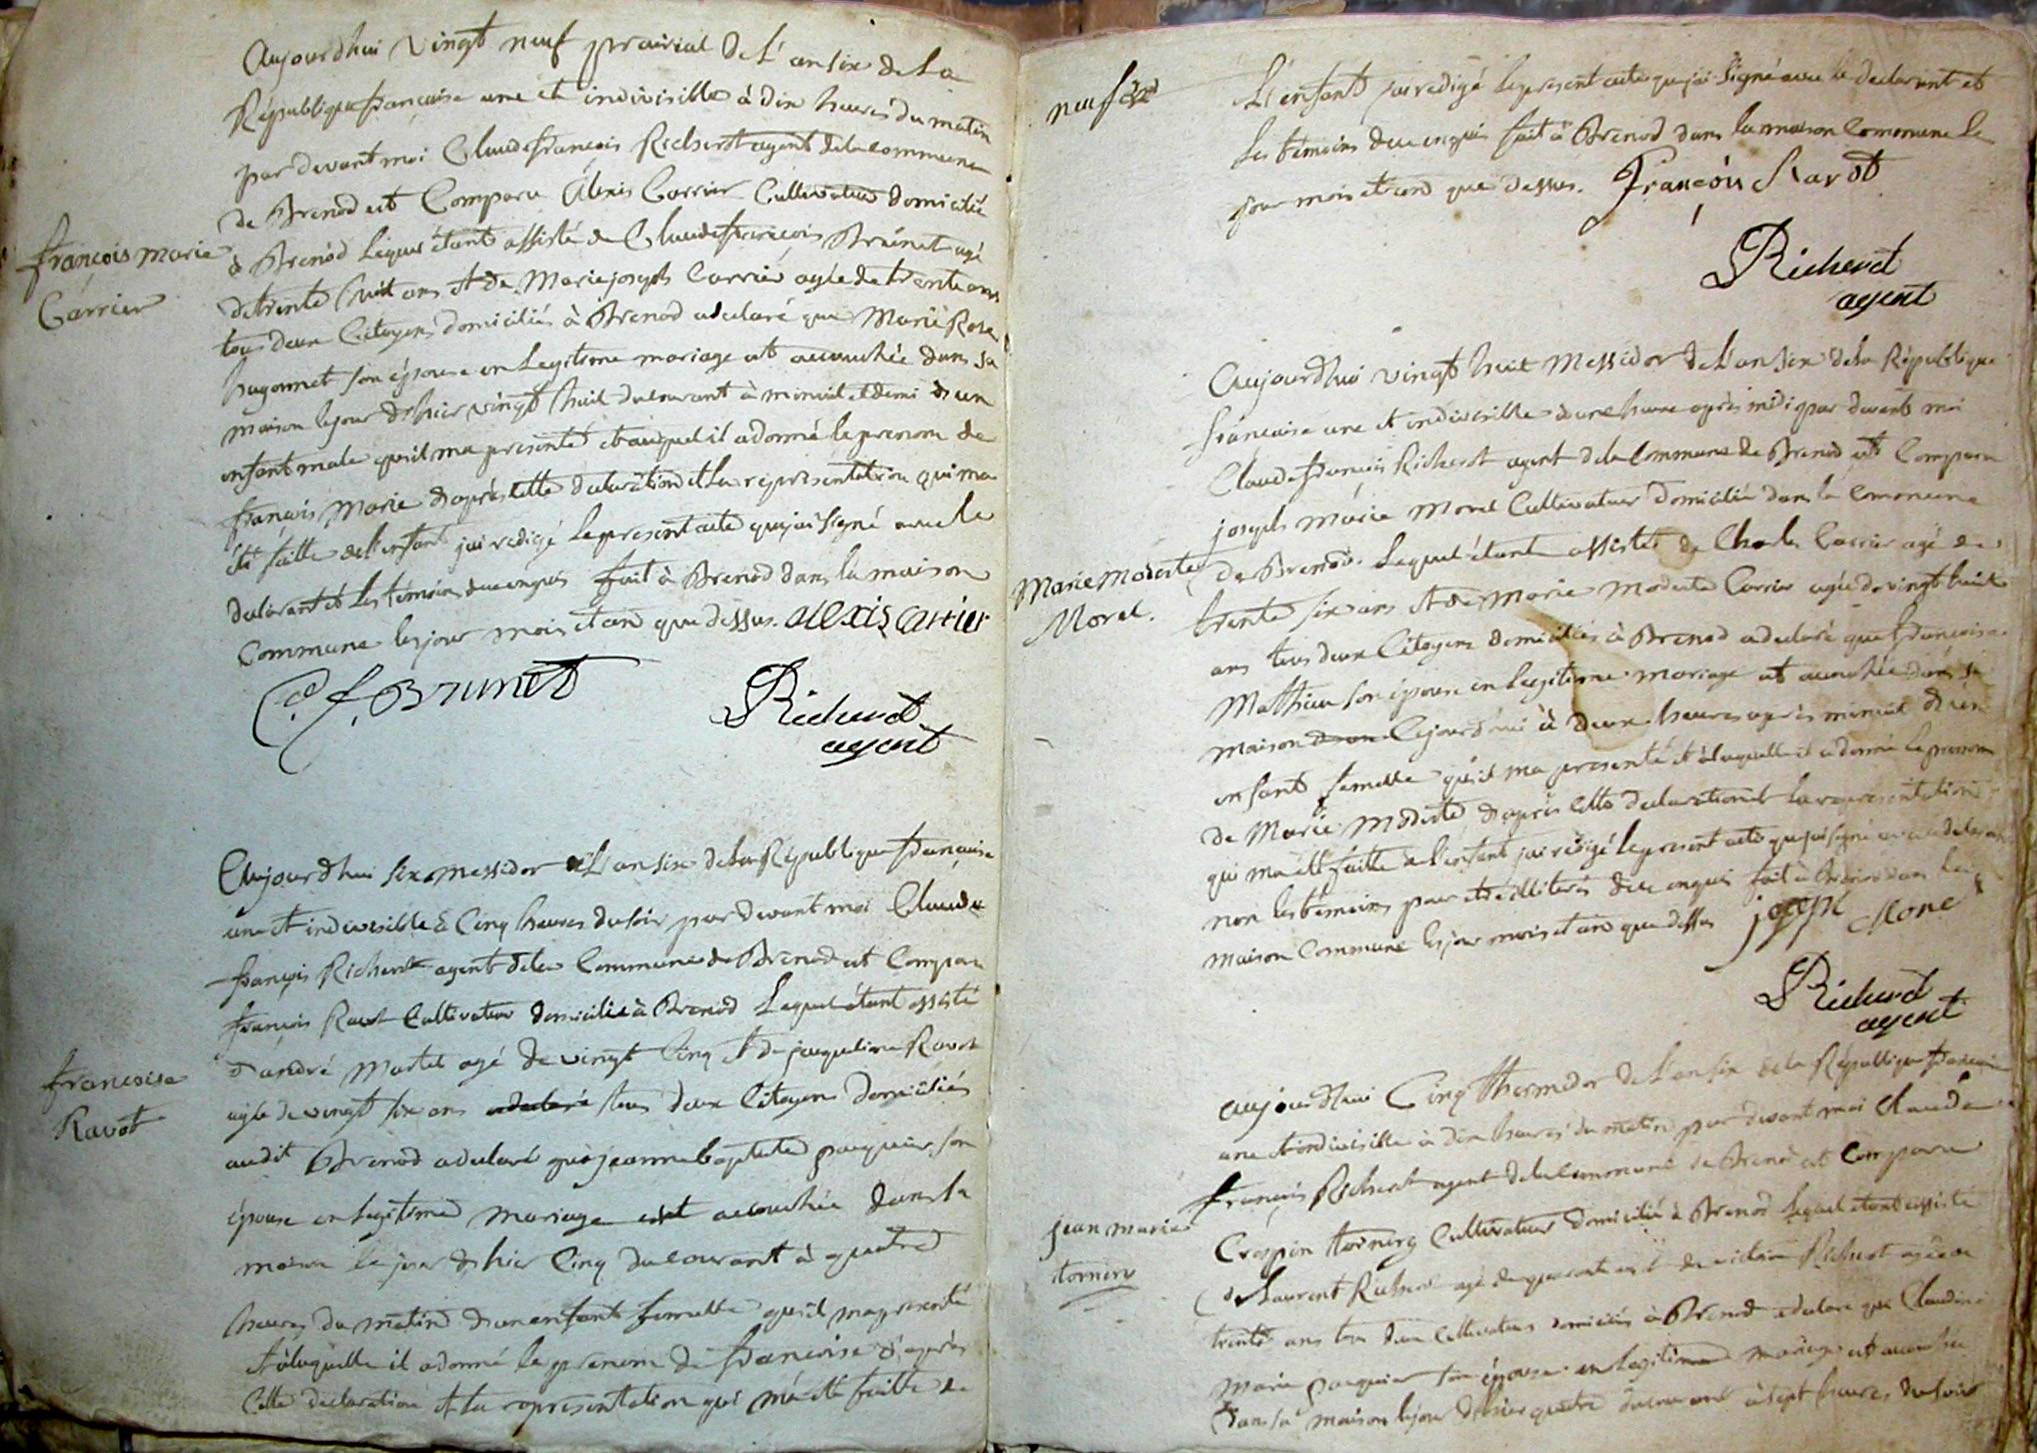 Aujourdhui vingt neuf prairial de L'an six de La
République française une et indivisible à dix heures du matin
par devant moi Claude françois Richerot agent dela commune
de Brenod est Comparu Alexis Carrier Cultivateur domicilié
françois marie
Carrier
à Brenod Lequel étant assisté de Claude françois Brunet agé
de trente huit ans et de Marie joseph Carrier agée de trente ans
tous deux Citoyens domiciliés à Brenod a declaré que Marie Rose
hugonnet son épouse en Legitime mariage est accouchée dans sa
maison le jour d'hier vingt huit du courant à minuit et demi d'un
enfant male qu'il ma presenté et auquel il a donné le prenom de
françois Marie d'après cette declaration et La representation qui ma
été faitte de l'enfant jai redigé Le present acte que jai signé avec le
declarant et Les témoins de ce enquis fait à Brenod dans la maison
Commune les jour mois et an que dessus. alexis carrier
C. f. Brunet
Richerot
agent
Aujourdhui six messidor de L'an six de la République française
une et indivisible à Cinq heures du soir par devant moi Claude
françois Richerot agent dela Commune de Brenod est Comparu
françois Ravot Cultivateur domicilié à Brenod Lequel étant assisté
d'andré Martel agé de vingt Cinq et de jaqueline Ravot
francoise
Ravot
agée de vingt six ans a declaré tous deux Citoyens domiciliés
audit Brenod a declaré que jeanne baptiste paquier son
épouse en Legitime mariage est accouchée dans la
maison le jour d'hier Cinq du courant à quatre
heures du matin d'un enfant femelle qu'il ma presenté
et à laquelle il a donné le prenom de françoise d'après
Cette declaration et La representation qui m'a été faitte de
neuf
L'enfant jai redigé Le present acte que jai signé avec le declarant et
les témoins de ce enquis fait à Brenod dans la maison Commune Le
jour mois et an que dessus. François Ravot
Richerot
agent
Aujourdhui vingt huit Messidor de L'an six dela République
française une et indivisible à une heure après midi par devant moi
Claude françois Richerot agent dela Commune de Brenod est Comparu
joseph Marie Morel Cultivateur domicilié dans la Commune
Marie Modeste
Morel.
de Brenod. Lequel étant assisté de Charles Carrier agé de
trente six ans et de Marie Modeste Carrier agée de vingt huit
ans tous deux Citoyens domiciliés à Brenod a declaré que françoise
Mathieu son épouse en Legitime mariage est accouchée dans sa
maison Cejourd'hui à deux heures après minuit d'un
enfant femelle qu'il ma presenté et à laquelle il a donné le prenom
de Marie Modeste d'après Cette declaration et La representation
qui ma été faitte de l'enfant jai redigé Le present acte que jai signé avec le declarant
non les témoins pour être illiterés de ce enquis fait à Brenod dans la
maison Commune les jour mois et an que dessus joseph Morel
Richerot
agent
aujourdhui Cinq thermidor de L'an six de la République française
une et indivisible à dix heures du matin par devant moi Claude
françois Richerot agent dela Commune de Brenod est Comparu
jean marie
tornery
Crespin tornery Cultivateur domicilié à Brenod Lequel étant assisté
de Laurent Richerot agé de quarante Richerot agée de
trente ans tous deux Cultivateurs domiciliés à Brenod a declaré que Claudine
Marie paquier son épouse en Legitime mariage est accouchée
dans sa maison le jour d'hier quatre du courant à sept heures du soir